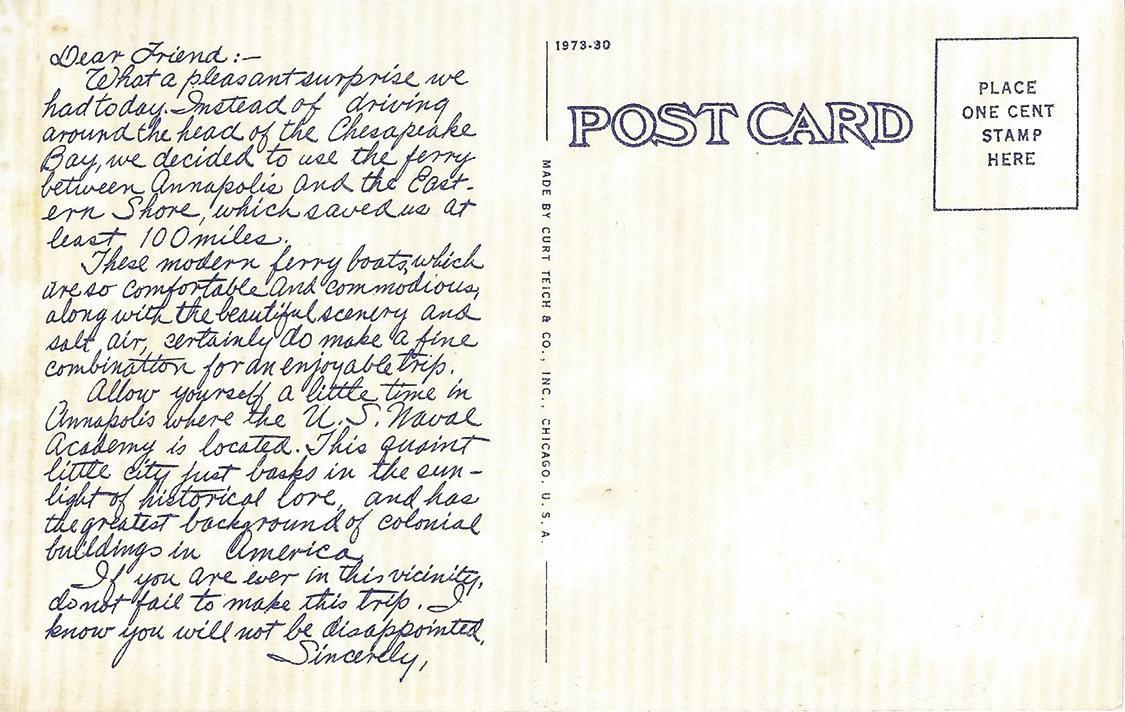 Dear Friend:-
What a pleasant surprise we
had today. Instead of driving
around the head of the Chesapeake
Bay, we decided to use the ferry
between Annapolis and the East-
ern Shore, which saved us at
least 100 miles.
These modern ferry boats, which
are so comfortable and commodious,
along with the beautiful scenery and
salt air, certainly do make a fine
combination for an enjoyable trip.
Allow yourself a little time in
Annapolis where the U. S. Naval
Academy is located. This quaint
little city just basks in the sun-
light of historical lore, and has
the greatest background of colonial
buildings in America.
If you are ever in this vicinity,
do not fail to make this trip. I
know you will not be disappointed.
Sincerely,
1973-30
POST CARD
MADE BY CURT TEICH & CO., INC., CHICAGO, U. S. A.
PLACE
ONE CENT
STAMP
HERE